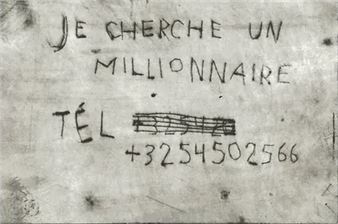 JE CHERCHE UN
MILLIONNAIRE
TÉL
+3254502566